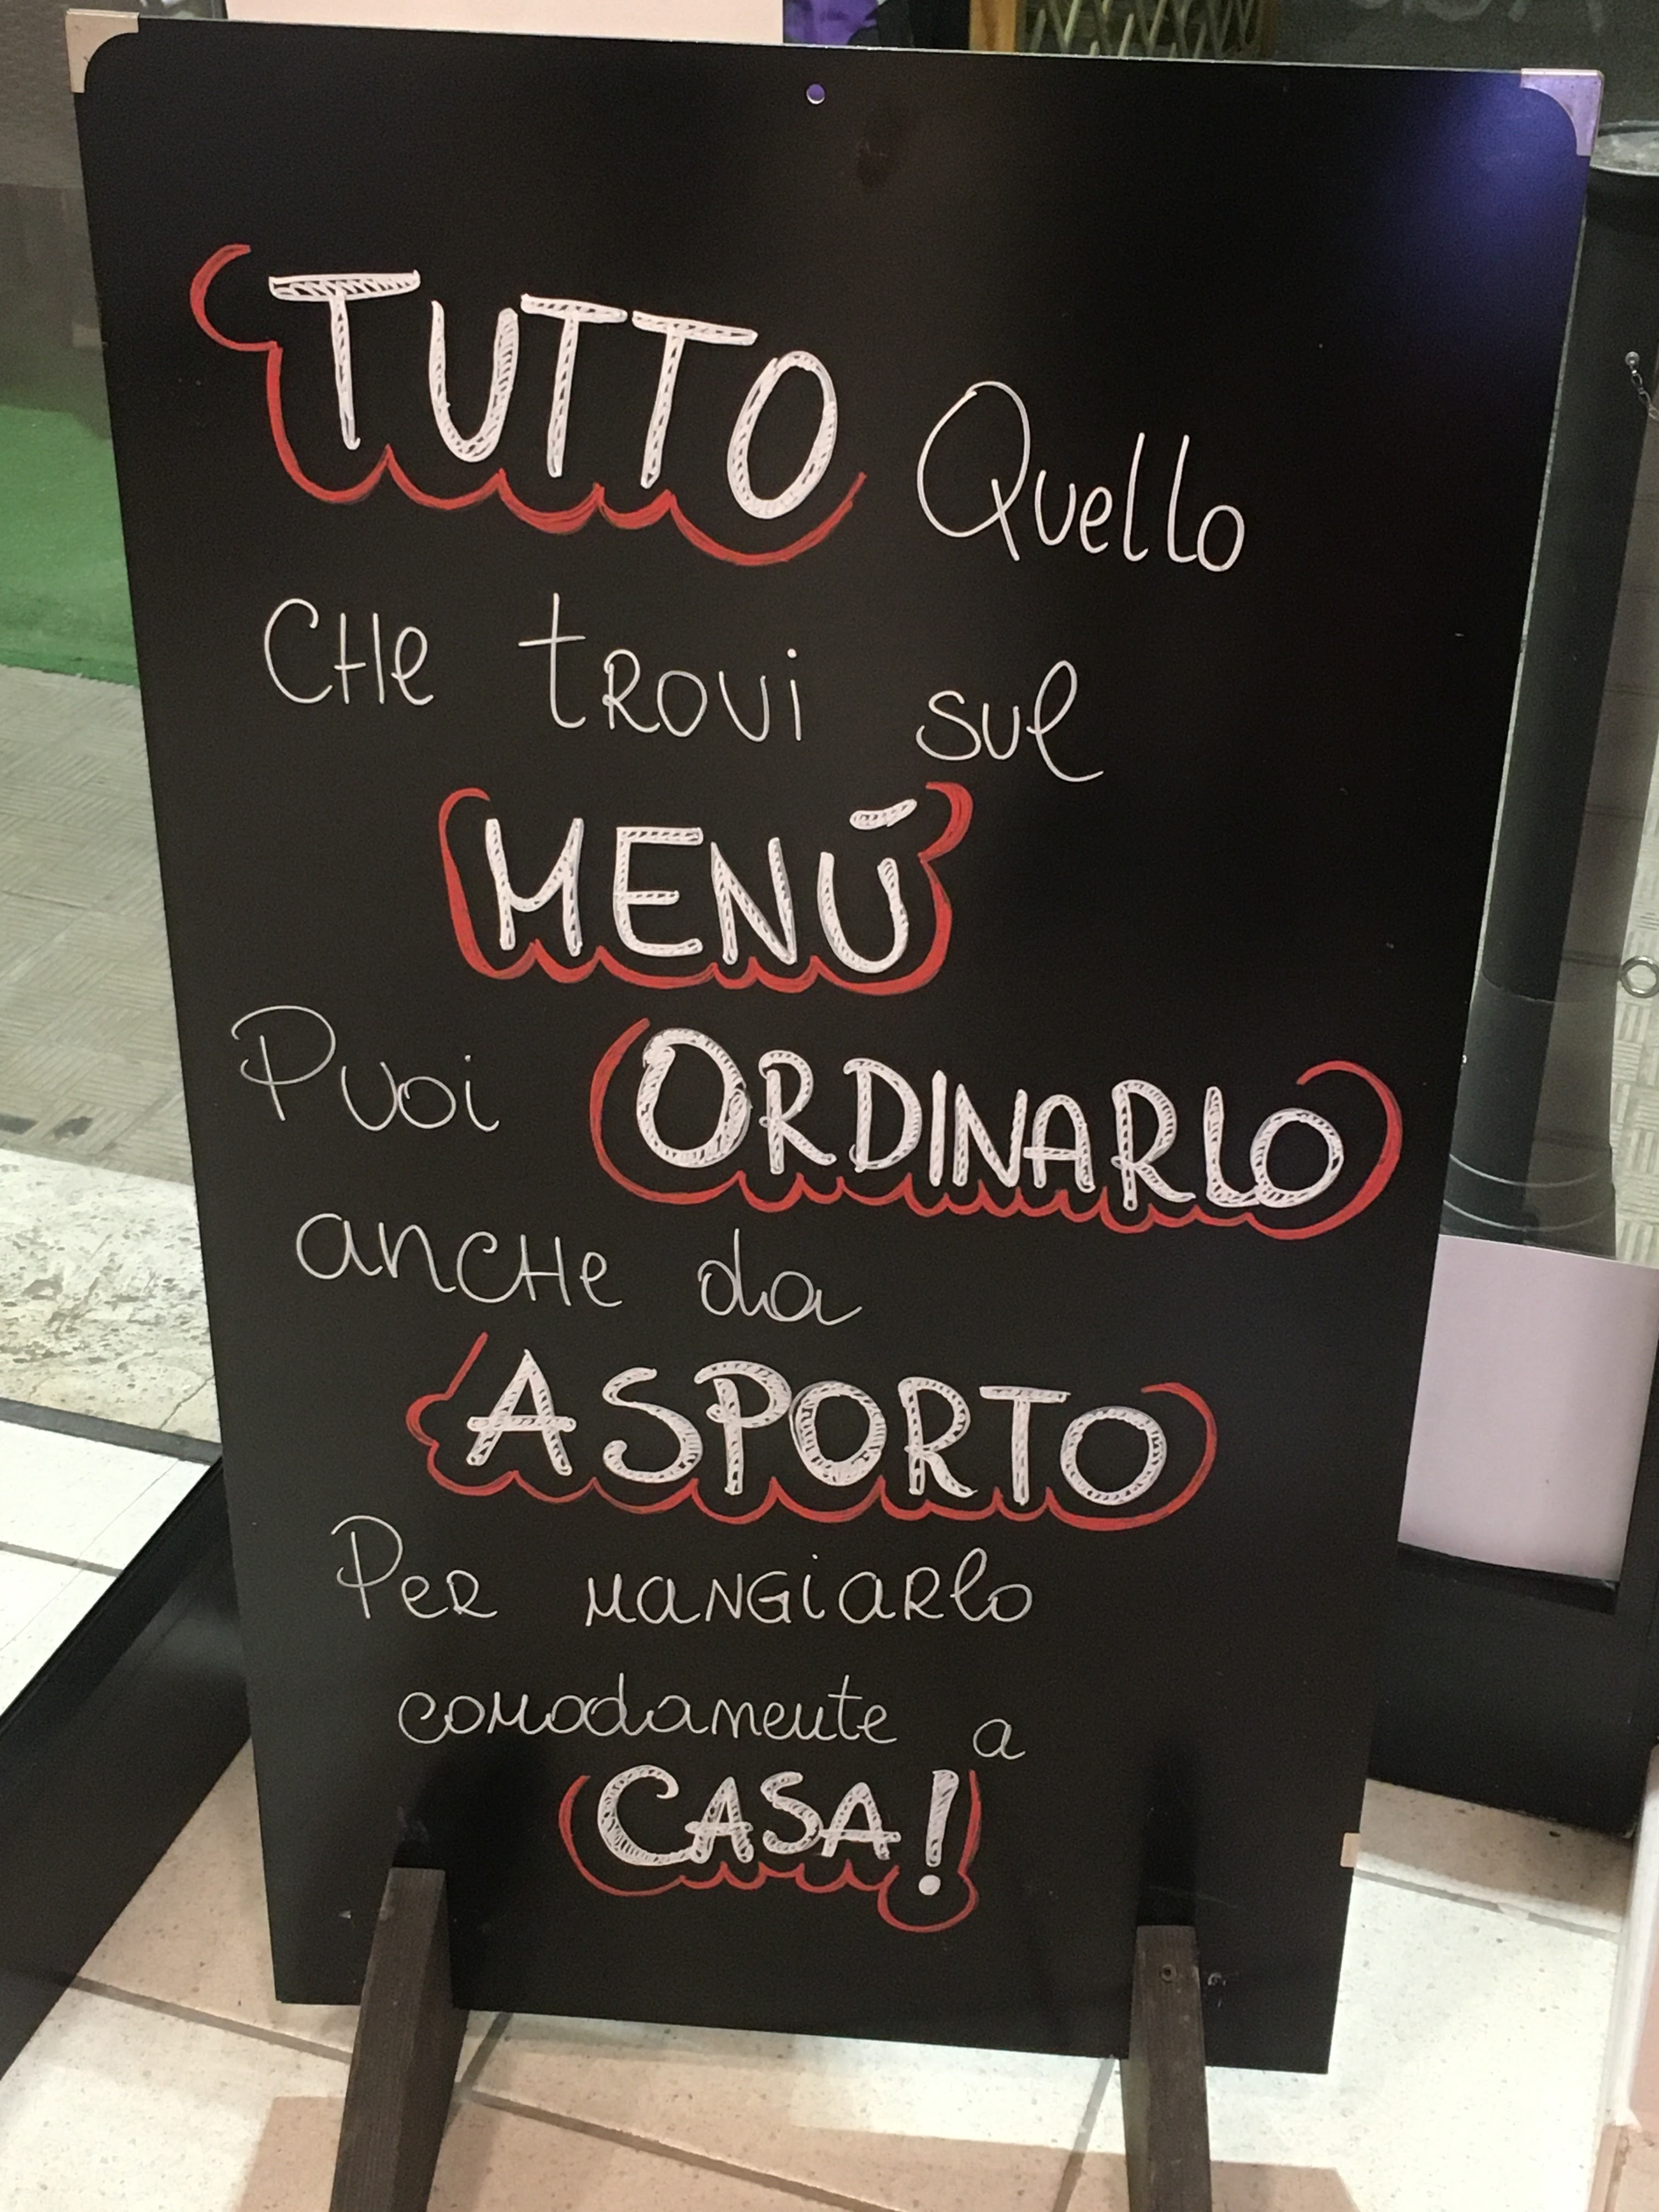 TUTTO Quello
CHe tROVi sul
MENÚ
Puoi ORDINARLO
anCHe da
ASPORTO
PeR MaNGiaRlo
comodamente a
CASA!